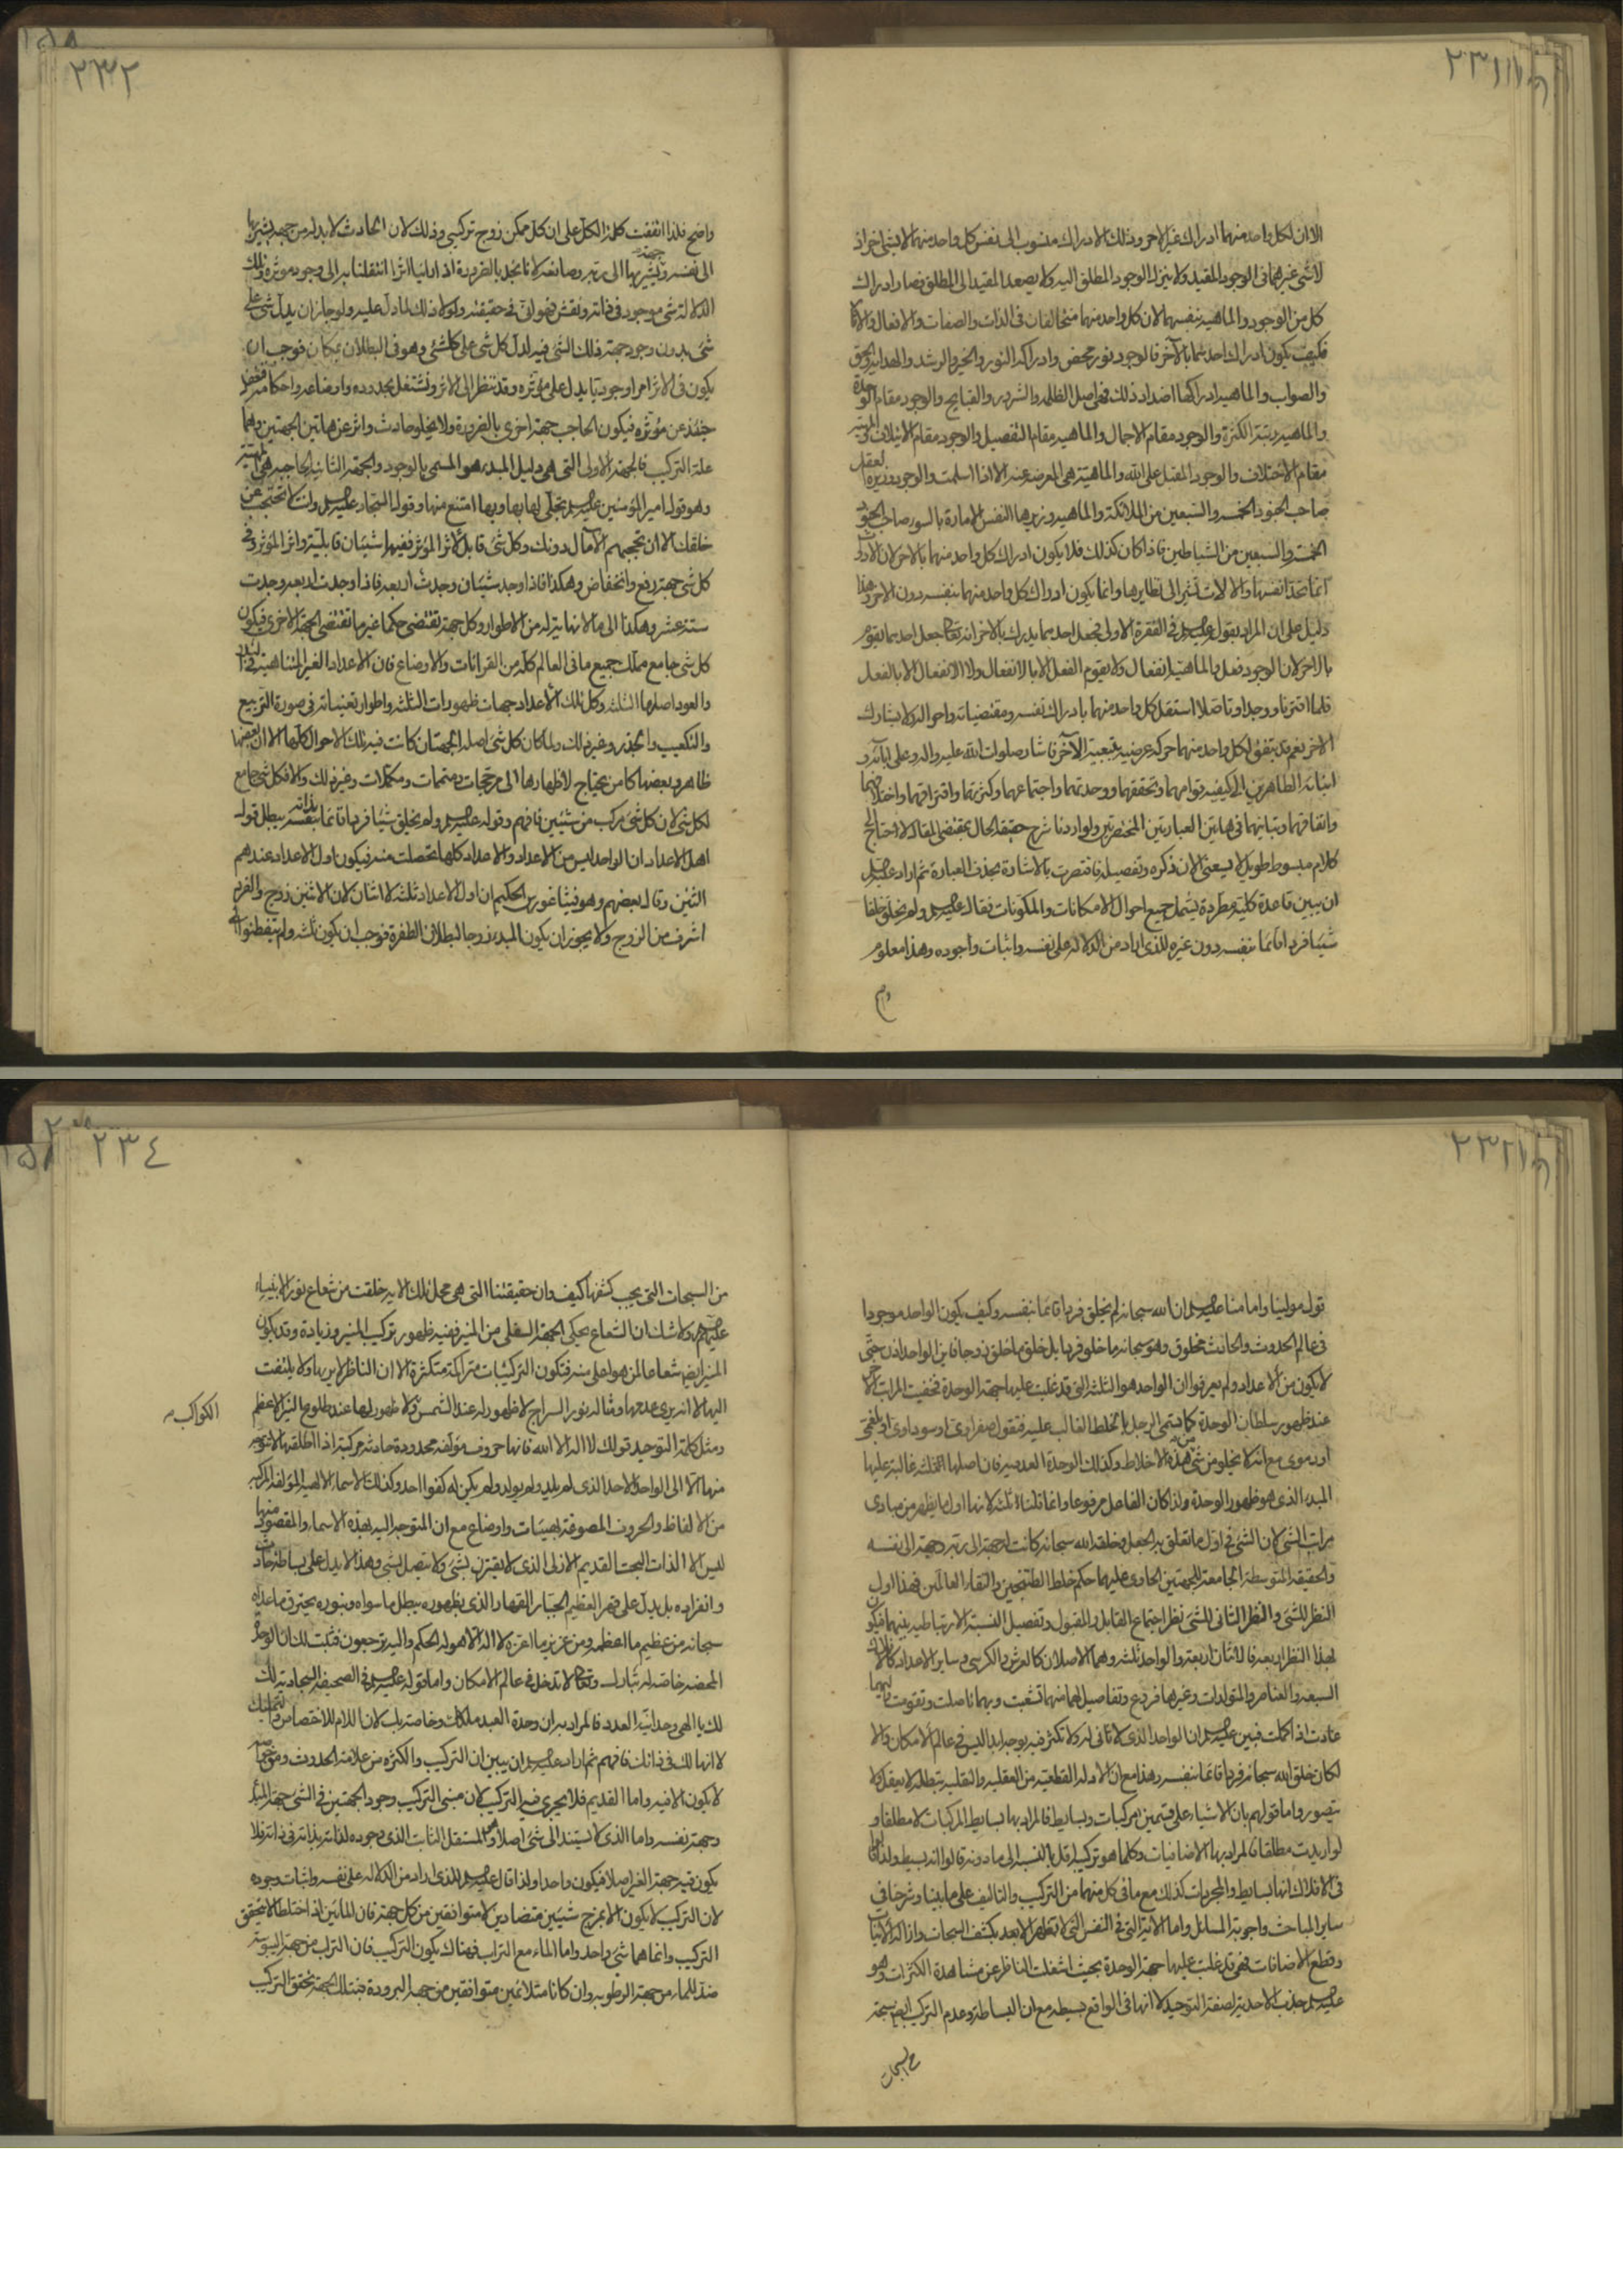 ٢٣١
الا ان لكل واحد منهما ادراك غير الاخر وذلك الادراك منسوب الى نفس كل واحد منهما لا بشئ اخر اذ
لا شئ غيرهما فى الوجود المقيد ولا ينزل الوجود المطلق اليه ولا يصعد المقيد الى المطلق فصار ادراك
كل من الوجود والماهيه بنفسهما لان كل واحد منهما متخالفان فى الذات والصفات والافعال والاثار
فكيف يكون ادراك احدهما بالآخر فالوجود نور محض وادراكه النور والخير والرشد والهدايه والحق
والصواب والماهيه ادراكها اضداد ذلك فهى اصل الظلمه والشرور والقبايح والوجود مقام الوحدة
والماهيه رتبة الكثرة والوجود مقام الاجمال والماهيه مقام التفصيل والوجود مقام الايتلاف والماهيه
مقام الاختلاف والوجود المقبل على الله والماهية هى المعرضه عنه الا اذا اسلمت والوجود وزيره العقل
صاحب الجنود الخمسه والسبعين من الملائكة والماهيه وزيرها النفس الامارة بالسوء صاحب الجنود
الخمسة والسبعين من الشياطين فاذا كان كذلك فلا يكون ادراك كل واحد منهما بالاخر لان الادوات
انما تحد انفسها والالات تشير الى نظايرها وانما يكون ادراك كل واحد منهما بنفسه دون الاخر وهذا
دليل على ان المراد بقوله عليه السلم فى الفقرة الاولى فجعل احدهما يدرك بالاخر انه تعالى جعل احدهما يقوم
بالاخر لان الوجود فعل والماهية انفعال ولا يقوم الفعل الا بالانفعال ولا الانفعال الا بالفعل
فلما اقترنا ووجدا وتاصلا استقل كل واحد منهما بادراك نفسه ومقتضياته واحواله ولا يشارك
الاخر نعم قد يتفق لكل واحد منهما حركه عرضيه بتبعية الآخر فاشار صلوات الله عليه واله وعلى ابآئه و
ابنائه الطاهرين الى كيفيه قوامهما وتحققهما ووحدتهما واجتماعهما وكثرتهما واقترانهما واختلافهما
واتفاقهما وتباينهما فى هاتين العبارتين المختصرتين ولو اردنا شرح حقيقة الحال بمقتضى المقال لاحتاج الى
كلام مبسوط طويل لا يسعنى الان ذكره وتفصيله فاقتصرت بالاشارة بحذف العبارة ثم اراد عليه السلم
ان يبين قاعدة كلية مطردة يشمل جميع احوال الامكانات والمكونات فقال عليه السلم ولم يخلق خلقا
شيئا فردا قائما بنفسه دون غيره للذى اراد من الدلاله على نفسه واثبات وجوده وهذا معلوم
٢٣٢
واضح فلذا اتفقت كلمة الكل على ان كل ممكن زوج تركيبى وذلك لان الحادث لا بد له من جهة يشير بها
الى نفسه وجهة يشير بها الى ربه وصانعه لانا نجد بالضرورة اذا راينا اثرا انتقلنا به الى وجود موثره وتلك
الدلالة شئ موجود فى ذاته ونقش فهوانى فى حقيقته ولولا ذلك لما دل عليه ولو جاز ان يدل شئ على
شئ بدون وجود جهة ذلك الشئ فيه لدل كل شئ على كلشئ وهو فى البطلان بمكان فوجب ان
يكون فى الاثر امرا وجوديا يدل على مؤثره وقد تنظر الى الاثر وتشتغل بحدوده واوضاعه واحكامه فتغفل
حينئذ عن مؤثره فيكون الحاجب جهة اخرى بالضرورة ولا يخلو حادث واثر عن هاتين الجهتين وهما
علة التركيب فالجهة الاولى التى هى دليل المبدء هو المسمى بالوجود والجهة الثانيه الحاجبه هى الماهية
وهو قول امير المؤمنين عليه السلم تجلى لها بها وبها امتنع منها وقول السجاد عليه السلم وانك لا تحتجب عن
خلقك الا ان تحجبهم الآمال دونك وكل شئ قابل لاثر المؤثر ففيها شيئان قابلية واثر المؤثر وفى
كل شئ جهة رفع وانخفاض وهكذا فاذا وجد شيئان وجدت اربعه فاذا وجدت اربعه وجدت
ستة عشر وهكذا الى ما لا نهاية له من الاطوار وكل جهة تقتضى حكما غير ما تقتضى الجهة الاخرى فيكون
كل شئ جامع مملك جميع ما فى العالم كله من القرانات والاوضاع فان الاعداد الغير المتناهيه فى البدء
والعود اصلها الثلثه وكل تلك الاعداد جهات ظهورات الثلثه واطوار تعيناته فى صورة التربيع
والتكعيب والجذر وغير ذلك ولما كان كل شئ اصله الجهتان كانت فيه تلك الاحوال كلها الا ان بعضها
ظاهره وبعضها كامن يحتاج لاظهارها الى مرجحات ومتممات ومكملات وغير ذلك والا فكل شئ جامع
لكل شئ لان كل شئ مركب من شيئين فافهم وقوله عليه السلم ولم يخلق شيئا فردا قائما بنفسه بذاته يبطل قول
اهل الاعداد ان الواحد ليس من الاعداد والاعداد كلها تحصلت منه فيكون اول الاعداد عندهم
اثنين وقال بعضهم وهو فيثاغورس الحكيم ان اول الاعداد ثلثه لا اثنان لان الاثنين زوج والفرد
اشرف من الزوج ولا يجوز ان يكون المبدء زوجا لبطلان الطفرة فوجب ان يكون ثلثه ولم يتفطنوا الى
٢٣٣
قول مولينا وامامنا عليه السلم ان الله سبحانه لم يخلق فردا قائما بنفسه وكيف يكون الواحد موجودا
فى عالم الحدوث والحادث مخلوق وهو سبحانه ما خلق فردا بل خلق ما خلق زوجا فاين الواحد اذن حتى
لا يكون من الاعداد ولم يعرفوا ان الواحد هو الثلثه التى قد غلبت عليها جهة الوحدة فخفيت المراتب
عند ظهور سلطان الوحدة كما يسمى الرجل بالخلط الغالب عليه فتقول صفراوى او سوداوى او بلغمى
او دموى مع انه لا يخلو من شئ من هذه الاخلاط وكذلك الوحدة العدديه فان اصلها الثلثه غالبة عليها
المبدء الذى هو ظهور الوحدة ولذا كان الفاعل مرفوعا وانما قلنا ثلثه لانها اول ما يظهر من مبادى
مراتب الشئ لان الشئ فى اول ما تعلق به الجعل وخلقه الله سبحانه كانت له جهة الى ربه وجهة الى نفسه
والحقيقه المتوسطة الجامعة للجهتين الحاوى عليهما حكم خلط الطتنجين والتقاء العالمين فهذا اول
النظر للشئ والنظر الثانى للشئ نظر اجتماع القابل والمقبول وتفصيل النسبة الارتباطيه بينهما فيكون
لهذا النظر اربعه فالاثنان اربعة والواحد ثلثه وهما الاصلان كالعرش والكرسى وساير الاعداد كالافلاك
السبعه والعناصر والمتولدات وغيرها فروع وتفاصيل لهما منهما تشعبت وبهما تاصلت وتقومت واليهما
عادت اذا كملت فبين عليه السلم ان الواحد الذى لا ثانى له ولا تكثر فيه بوجه ابدا ليس فى عالم الامكان والا
لكان خلق الله سبحانه فردا قائما بنفسه وهذا مع ان الادلة القطعية من العقليه والنقليه تبطله لا يعقل ولا
يتصور واما قولهم بان الاشياء على قسمين مركبات وبسايط فالمراد بها بسايط المركبات لا مطلقا و
لو اريدت مطلقا فالمراد بها الاضافيات وكلما هو تركيبه اقل بالنسبه الى ما دونه قالوا انه بسيط ولذا قالوا
فى الافلاك انها بسايط والمجردات كذلك مع ما فى كل منهما من التركيب والتاليف على ما بينا وشرحنا فى
ساير المباحث واجوبة المسائل واما الاية التى فى النفس التى لا تظهر الا بعد كشف السبحات وازالة الانيات
وقطع الاضافات فهى قد غلبت عليها جهة الوحدة بحيث اشغلت الناظر عن مشاهدة الكثرات وهو
عليه السلم جذب الاحدية لصفة التوحيد لا انها فى الواقع بسيطه مع ان البساطة وعدم التركيب ايضا سبحة
من السبحات
٢٣٤
من السبحات التى يجب كشفها كيف وان حقيقتنا التى هى محل تلك الاية خلقت من شعاع نور الانبياء
عليهم السلم ولا شك ان الشعاع يحكى الجهة السفلى من المنير ففيه ظهور تركيب المنير وزيادة وقد يكون
المنير ايضا شعاعا لمن هو اعلى منه فتكون التركيبات متراكمة متكثرة الا ان الناظر لا يريها ولا يلتفت
اليها لا انه يرى عدمها ومثاله نور السراج لا ظهور له عند الشمس ولا ظهور لها عند طلوع النير الاعظم
الكواكب
ومثل كلمة التوحيد قولك لا اله الا الله فانها حروف مؤلفه محدودة حادثه مركبة اذا اطلقتها لا تتوجه
منها الا الى الواحد الاحد الذى لم يلد ولم يولد ولم يكن له كفوا احد وكذلك الاسماء الالهيه المؤلفة المركبه
من الالفاظ والحروف المصوغة بهيئات واوضاع مع ان المتوجه اليه بهذه الاسماء والمقصود منها
ليس الا الذات البحت القديم الازلى الذى لا يقترن بشئ ولا يتصل بشئ وهذا لا يدل على بساطة حادث
وانفراده بل يدل على قهر العظيم الجبار القهار الذى بظهوره يبطل ما سواه وبنوره يحترق ما عداه
سبحانه من عظيم ما اعظمه ومن عزيز ما اعزه لا اله الا هو له الحكم واليه ترجعون فثبت لك ان الوحدة
المحضه خاصة له تبارك وتعالى لا تدخل فى عالم الامكان واما قوله عليه السلم فى الصحيفه السجاديه لك
لك يا الهى وحدانية العدد فالمراد به ان وحدة العبد ملك لك وخاصة بك لان اللام للاختصاص والتمليك
لا انها لك فى ذاتك فافهم ثم اراد عليه السلم ان يبين ان التركيب والكثره من علامة الحدوث
لا يكون الا فيه واما القديم فلا يجرى فيه التركيب لان مبنى التركيب وجود الجهتين فى الشئ جهة المبدء
وجهة نفسه واما الذى لا يستند الى شئ اصلا وهو المستقل الثابت الذى وجوده لذاته بذاته فى ذاته فلا
يكون فيه جهة الغير اصلا فيكون واحدا ولذا قال عليه السلم للذى اراد من الدلاله على نفسه واثبات وجوده
لان التركيب لا يكون الا بمزج شيئين متضادين لا متوافقين من كل جهة فان المائين اذا اختلطا لا يتحقق
التركيب وانما هما شئ واحد واما الماء مع التراب فهناك يكون التركيب فان التراب من جهة اليبوسة
ضد للماء من جهة الرطوبه وان كانا متلائمين متوافقين من جهة البرودة فبتلك الجهة تحقق التركيب